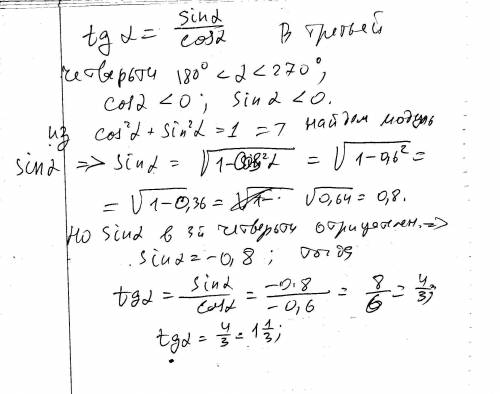 tg α = sinα / cosα В третьей
четверти 180° < α < 270°,
cosα < 0 ; sinα < 0.
из cos²α + sin²α = 1 => найдем модуль
sinα => sinα = √1-cos²α = √1-0,6² =
= √1-0,36 = √0,64 = 0,8.
Но sinα в 3й четверти отрицателен. =>
sinα = -0,8 ; тогда
tgα = sinα / cosα = -0.8 / -0,6 = 8/6 = 4/3;
tgα = 4/3 = 1 1/3;